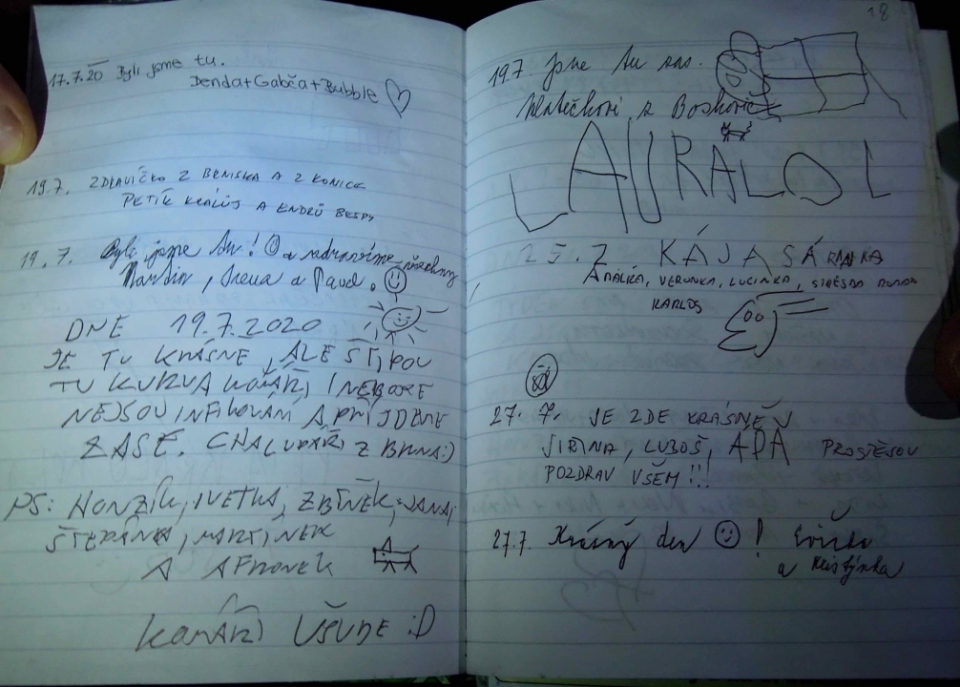 17.7.20 Byli jsme tu.
Denda+Gabča+Bubble
19.7. ZDRAVÍČKO Z BRNISKA A Z KONICE
PETÍK KRÁLŮJ A ENDRŮ
19.7. Byli jsme tu! a všechny
Martin, a Pavel.
DNE 19.7.2020
JE TU KRÁSNE, ALE ŠTÍPOU
TU KURVA KOMÁŘI,
NEJSOU A PŘIJDEME
ZASE. CHALUPÁŘI Z BRNA:)
PS: HONZÍK, IVETKA, ZBÍNĚK, JANA,
ŠTĚPÁNKA, MARTÍNEK
A AFRONEK
KOMÁŘI VŠUDE :D
18
19.7. Jsme tu zas.
z Boskovic
LAURALOL
25.7 KÁJA SÁRINKA
AMÁLKA, VERUNKA, LUCINKA,
KARLOS
27.7. JE ZDE KRÁSNĚ
JIŘINA, LUBOŠ, APA PROSTĚJOV
POZDRAV VŠEM!!!
27.7. Krásný den !
a Kristýnka